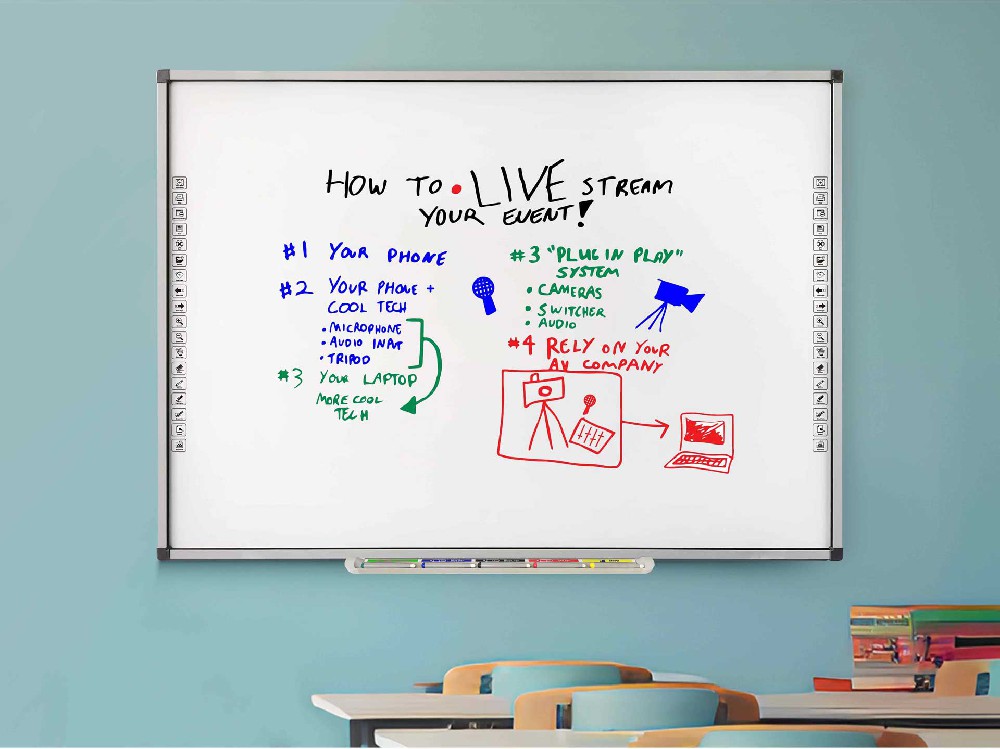 HOW TO • LIVE STREAM
YOUR EVENT!
#1 YOUR PHONE
#2 YOUR PHONE +
COOL TECH
• MICROPHONE
• AUDIO INPUT
• TRIPOD
#3 YOUR LAPTOP
MORE COOL
TECH
#3 "PLUG IN PLAY"
SYSTEM
• CAMERAS
• SWITCHER
• AUDIO
#4 RELY ON YOUR
AV COMPANY